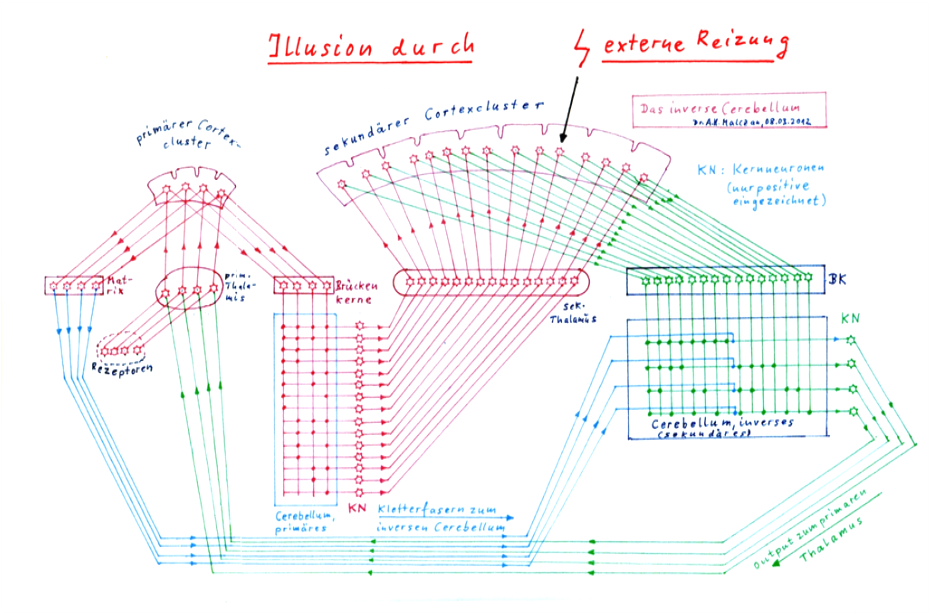 Illusion durch externe Reizung
primärer Cortex-
cluster
sekundärer Cortexcluster
Das inverse Cerebellum
Dr. A.H. Malczan, 08.03.2012
KN: Kernneuronen
(nur positive
eingezeichnet)
Mat-
rix
prim.
Thala-
mus
Brücken
kerne
sek.
Thalamus
BK
Rezeptoren
KN
Cerebellum, inverses
(sekundäres)
Cerebellum,
primäres
KN
Kletterfasern zum
inversen Cerebellum
Output zum primären
Thalamus